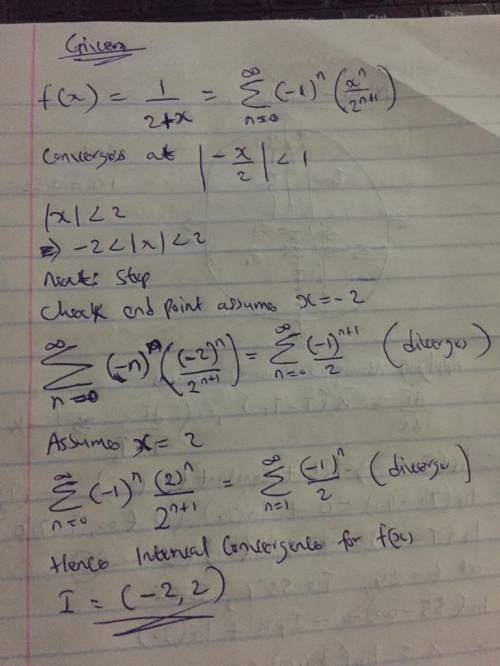 Given
f(x) = 1/(2+x) = ∞∑n=0 (-1)^n (x^n/2^(n+1))
Converges at |-x/2| < 1
|x| < 2
⇒ -2 < |x| < 2
Next: step
Check end point assume x = -2
∞∑n=0 (-n)^n ((-2)^n/2^(n+1)) = ∞∑n=0 (-1)^(n+1)/2 (diverges)
Assume x = 2
∞∑n=0 (-1)^n (2)^n/2^(n+1) = ∞∑n=1 (-1)^n/2 (diverge)
Hence Interval Convergence for f(x)
I = (-2, 2)